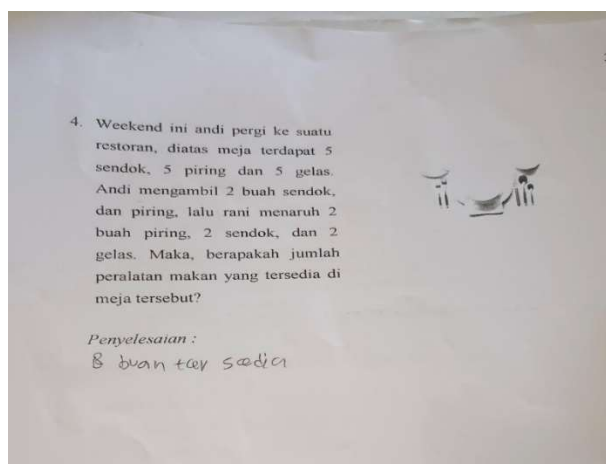 4. Weekend ini andi pergi ke suatu
restoran, diatas meja terdapat 5
sendok, 5 piring dan 5 gelas.
Andi mengambil 2 buah sendok,
dan piring, lalu rani menaruh 2
buah piring, 2 sendok, dan 2
gelas. Maka, berapakah jumlah
peralatan makan yang tersedia di
meja tersebut?
Penyelesaian :
8 buah ter sedia